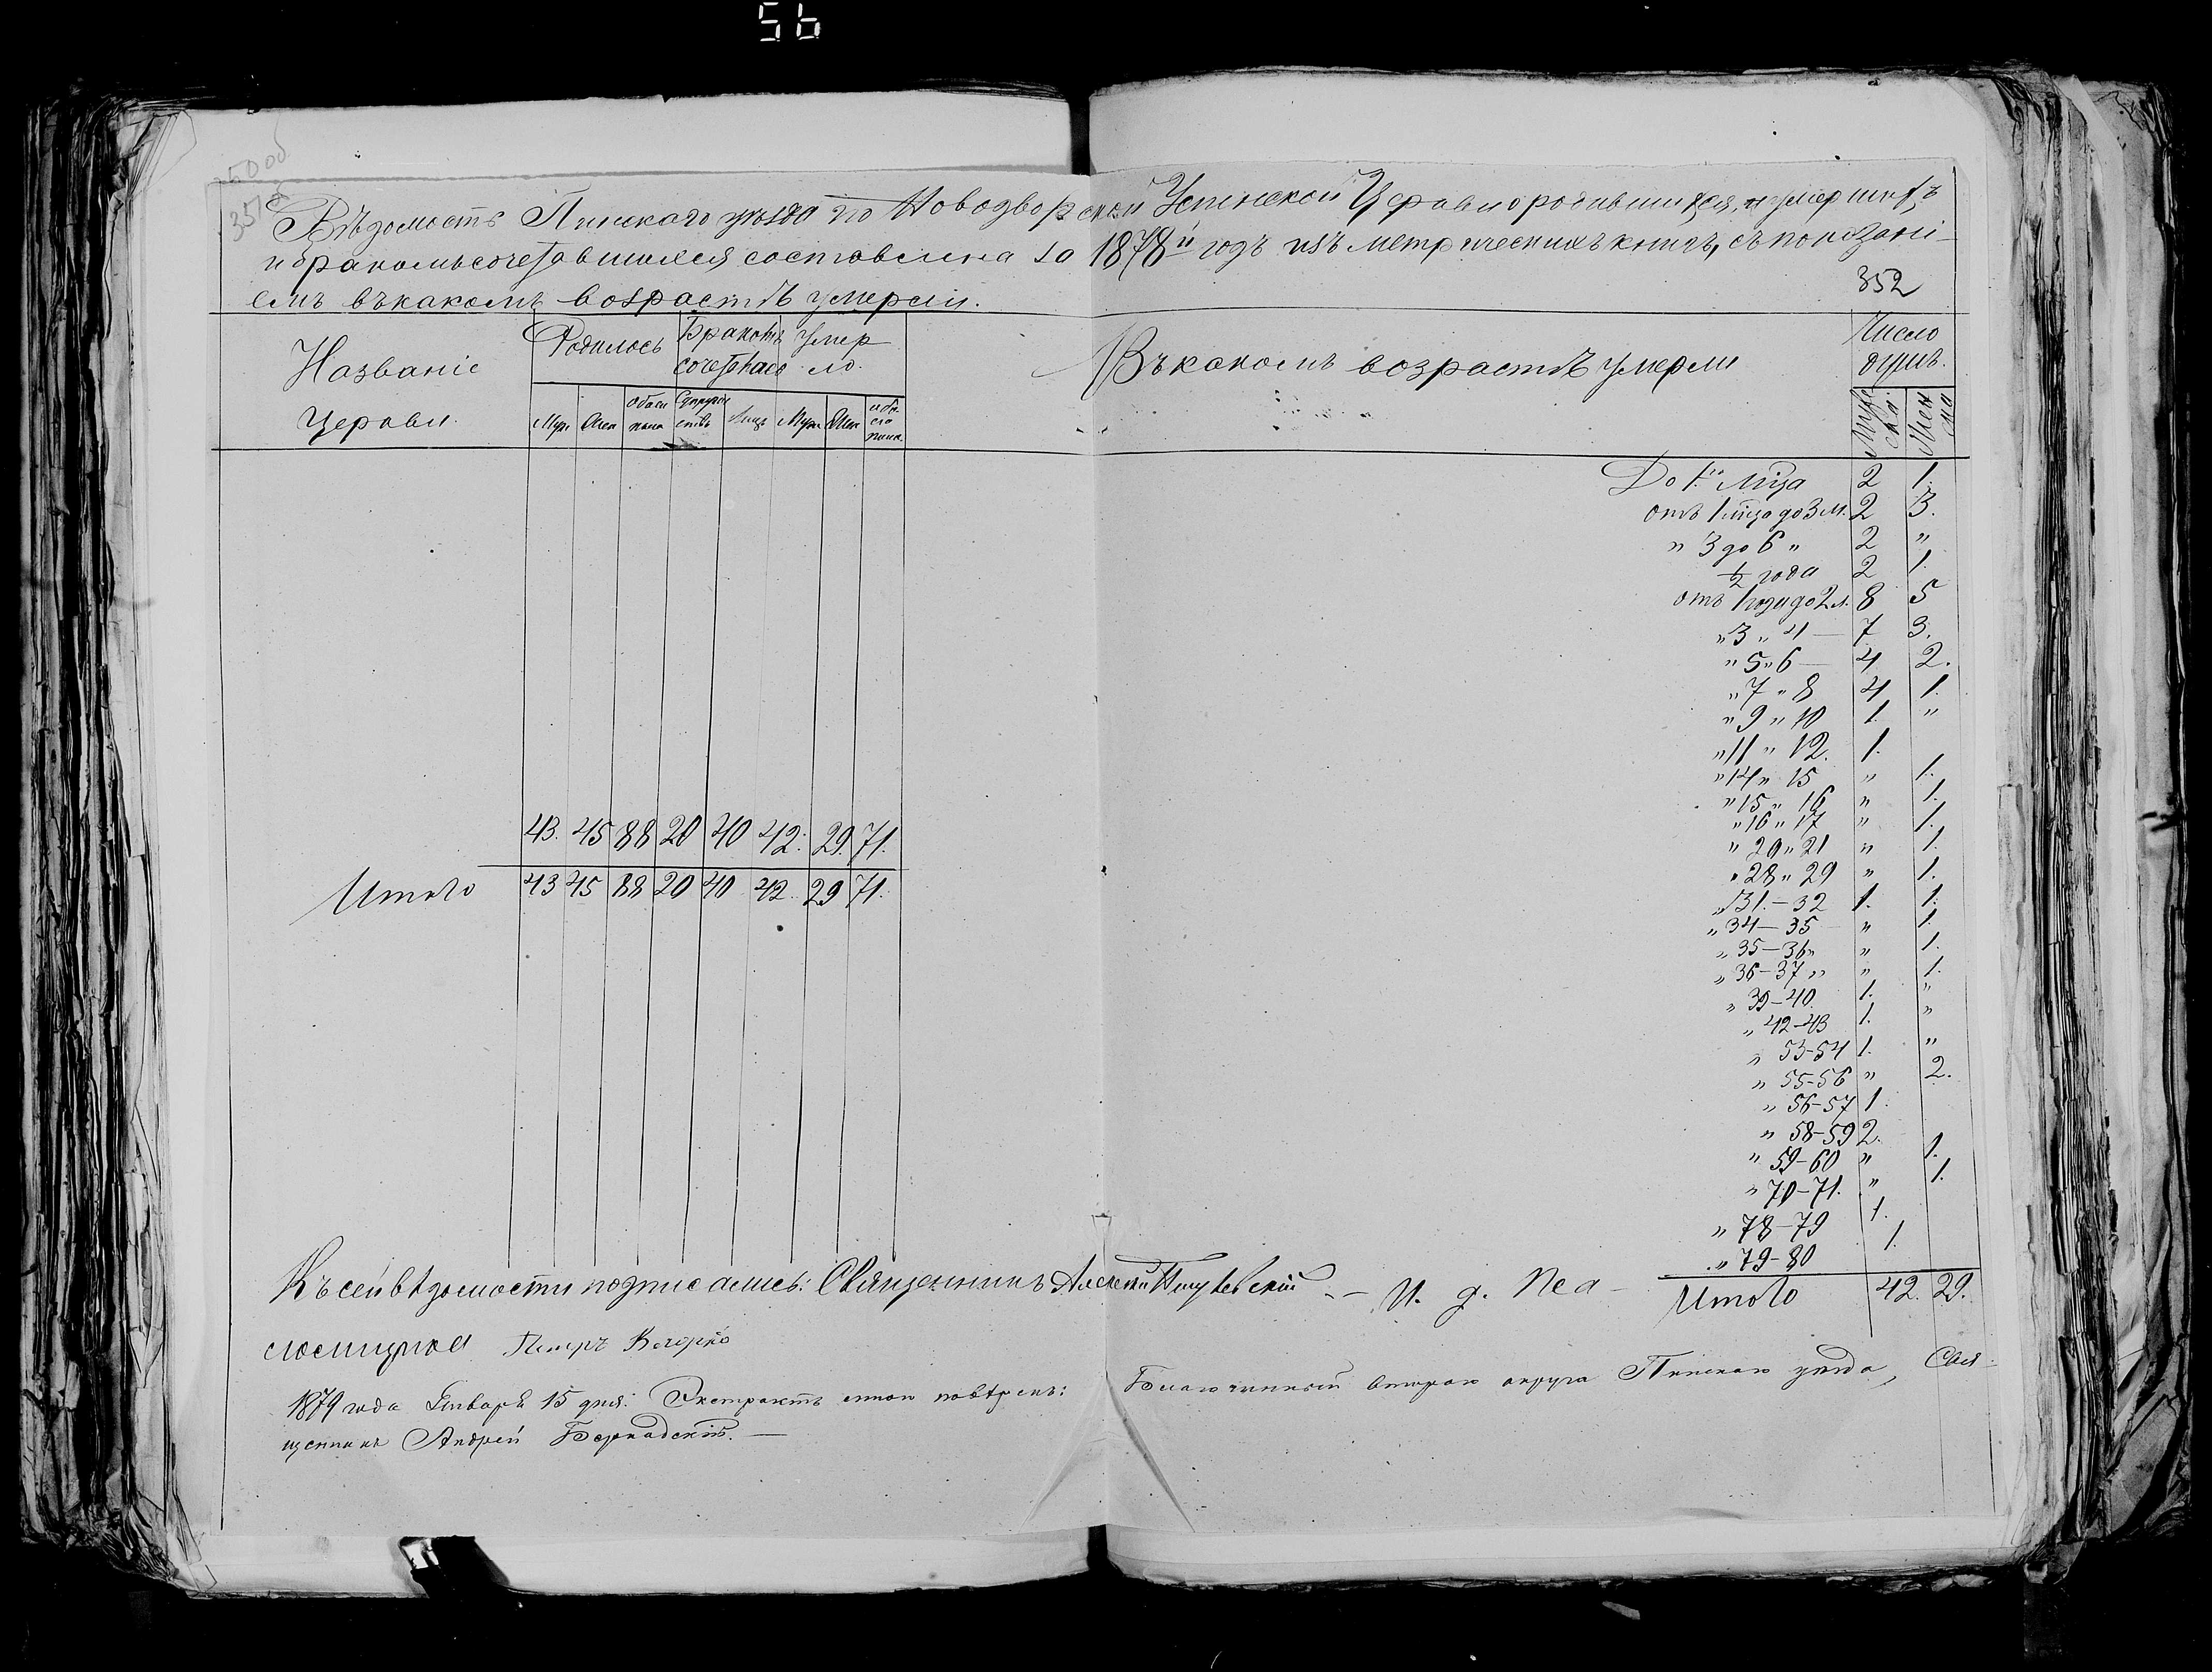 56
352
Вѣдомость Пинскаго уѣзда по Новодворской Успенской Церкви о родившихся, и умершихъ
и бракомъ сочетавшихся составлена за 1878й годъ изъ метрическихъ книгъ, съ показані-
емъ въ какомъ возрастѣ умерли.
Названіе
Церкви.
Родилось
Бракомъ
сочеталось
Умер
ло.
Муж. Жен. Обоего пола Супружествъ Лицъ Муж. Жен. обоего пола
Въ какомъ возрастѣ умерли
Число
душъ.
Мужска. Женска
До 1го мѣца 2 1.
отъ 1 мѣца до 3 м. 2 3.
" 3 до 6 " 2 "
1/2 года 2 1.
отъ 1 года до 2 л. 8 5
" 3 " 4 — 7 3.
" 5 " 6 — 4 2.
" 7 " 8 4 1.
" 9 " 10 1. "
" 11 " 12. 1.
" 14 " 15 " 1.
" 15 " 16 " 1.
" 16 " 17 " 1.
" 20 " 21 " 1.
" 28 " 29 " 1.
" 31. — 32 1. 1.
" 34 — 35 " 1.
" 35 — 36 " " 1.
" 36 — 37 " " 1.
" 39 — 40. 1. "
" 42-43 1. "
" 53-54 1. "
" 55-56 " 2.
" 56-57 1.
" 58-59 2.
" 59-60 " 1.
" 70-71. " 1.
" 78-79 1.
" 79-80 1.
Итого 42. 29.
43. 45 88 20 40 42. 29. 71.
Итого 43 45 88 20 40 42. 29 71.
Къ сей вѣдомости подписались: Священникъ Алексѣй — И. д. Пса-
ломщика Петръ
1879 года Января 15 дня. Экстрактъ этотъ повѣрялъ: Благочинный втораго округа Пинскаго уѣзда, Свя-
щенникъ Андрей —